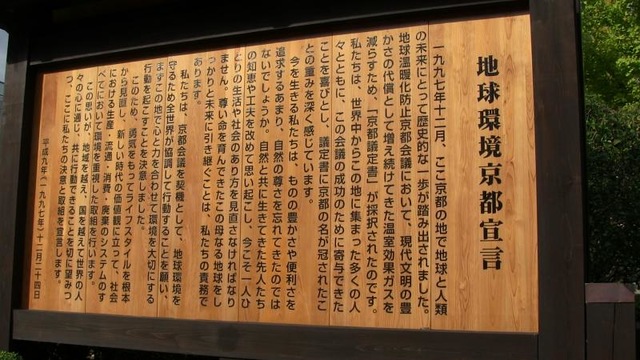 地球環境京都宣言
一九九七年十二月、ここ京都の地で地球と人類
の未来にとって歴史的な一歩が踏み出されました。
地球温暖化防止京都会議において、現代文明の豊
かさの代償として増え続けてきた温室効果ガスを
減らすため、「京都議定書」が採択されたのです。
私たちは、世界中からこの地に集まった多くの人
々とともに、この会議の成功のために寄与できた
ことを喜びとし、議定書に京都の名が冠されたこ
との重みを深く感じています。
今を生きる私たちは、ものの豊かさや便利さを
追求するあまり、自然の尊さを忘れてきたのでは
ないでしょうか。自然と共に生きてきた先人たち
の知恵や工夫を改めて思い起こし、今こそ一人ひ
とりの生活や社会のあり方を見直さなければなり
ません。尊い命を育んできたこの母なる地球をし
っかりと未来に引き継ぐことは、私たちの責務で
あります。
私たちは、京都会議を契機として、地球環境を
守るため全世界が協調して行動することを願い、
まずこの地で心と力を合わせて環境を大切にする
行動を起こすことを決意しました。
このため、勇気をもってライフスタイルを根本
から見直し、新しい時代の価値観に立って、社会
における生産・流通・消費・廃棄のシステムのす
べてにおいて環境を重視した取組を行います。
この思いが、地域を越え、国を越えて世界の人
々の心に通じ、共に行動できることを切に望みつ
つ、ここに私たちの決意と取組を宣言します。
平成九年(一九九七年)十二月二十四日